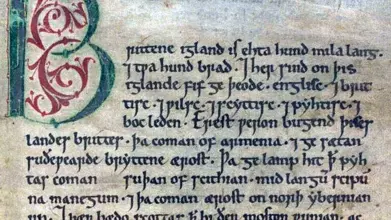 Brittene igland is ehta hund mila lang.
⁊ tƿa hund brad. ⁊ her sind on þis
iglande fif ge þeode. englisc. ⁊ brit
tisc. ⁊ ƿilsc. ⁊ scyttisc. ⁊ pyhtisc. ⁊
boc leden. Erest ƿeron bugend þises
landes brittes. þa coman of armenia. ⁊ ge sætan
suðeƿearde bryttene ærost. Þa ge lamp hit ꝥ pyh
tas coman suþan of scithian. mid langū scipū
na manegum. ⁊ þa coman ærost on norþ ybernian
up. ⁊ þer bædo scottas ꝥ hi ðer moston ƿunian. ac